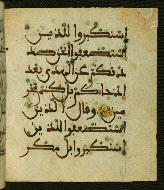 استكبروا للذين
استضعفوا انحن صد
دنكم عن الهدى بعد
اذ جاءكم بل كنتم مجر
مين وقال الذين
استضعفوا للذين
استكبروا بل مكر